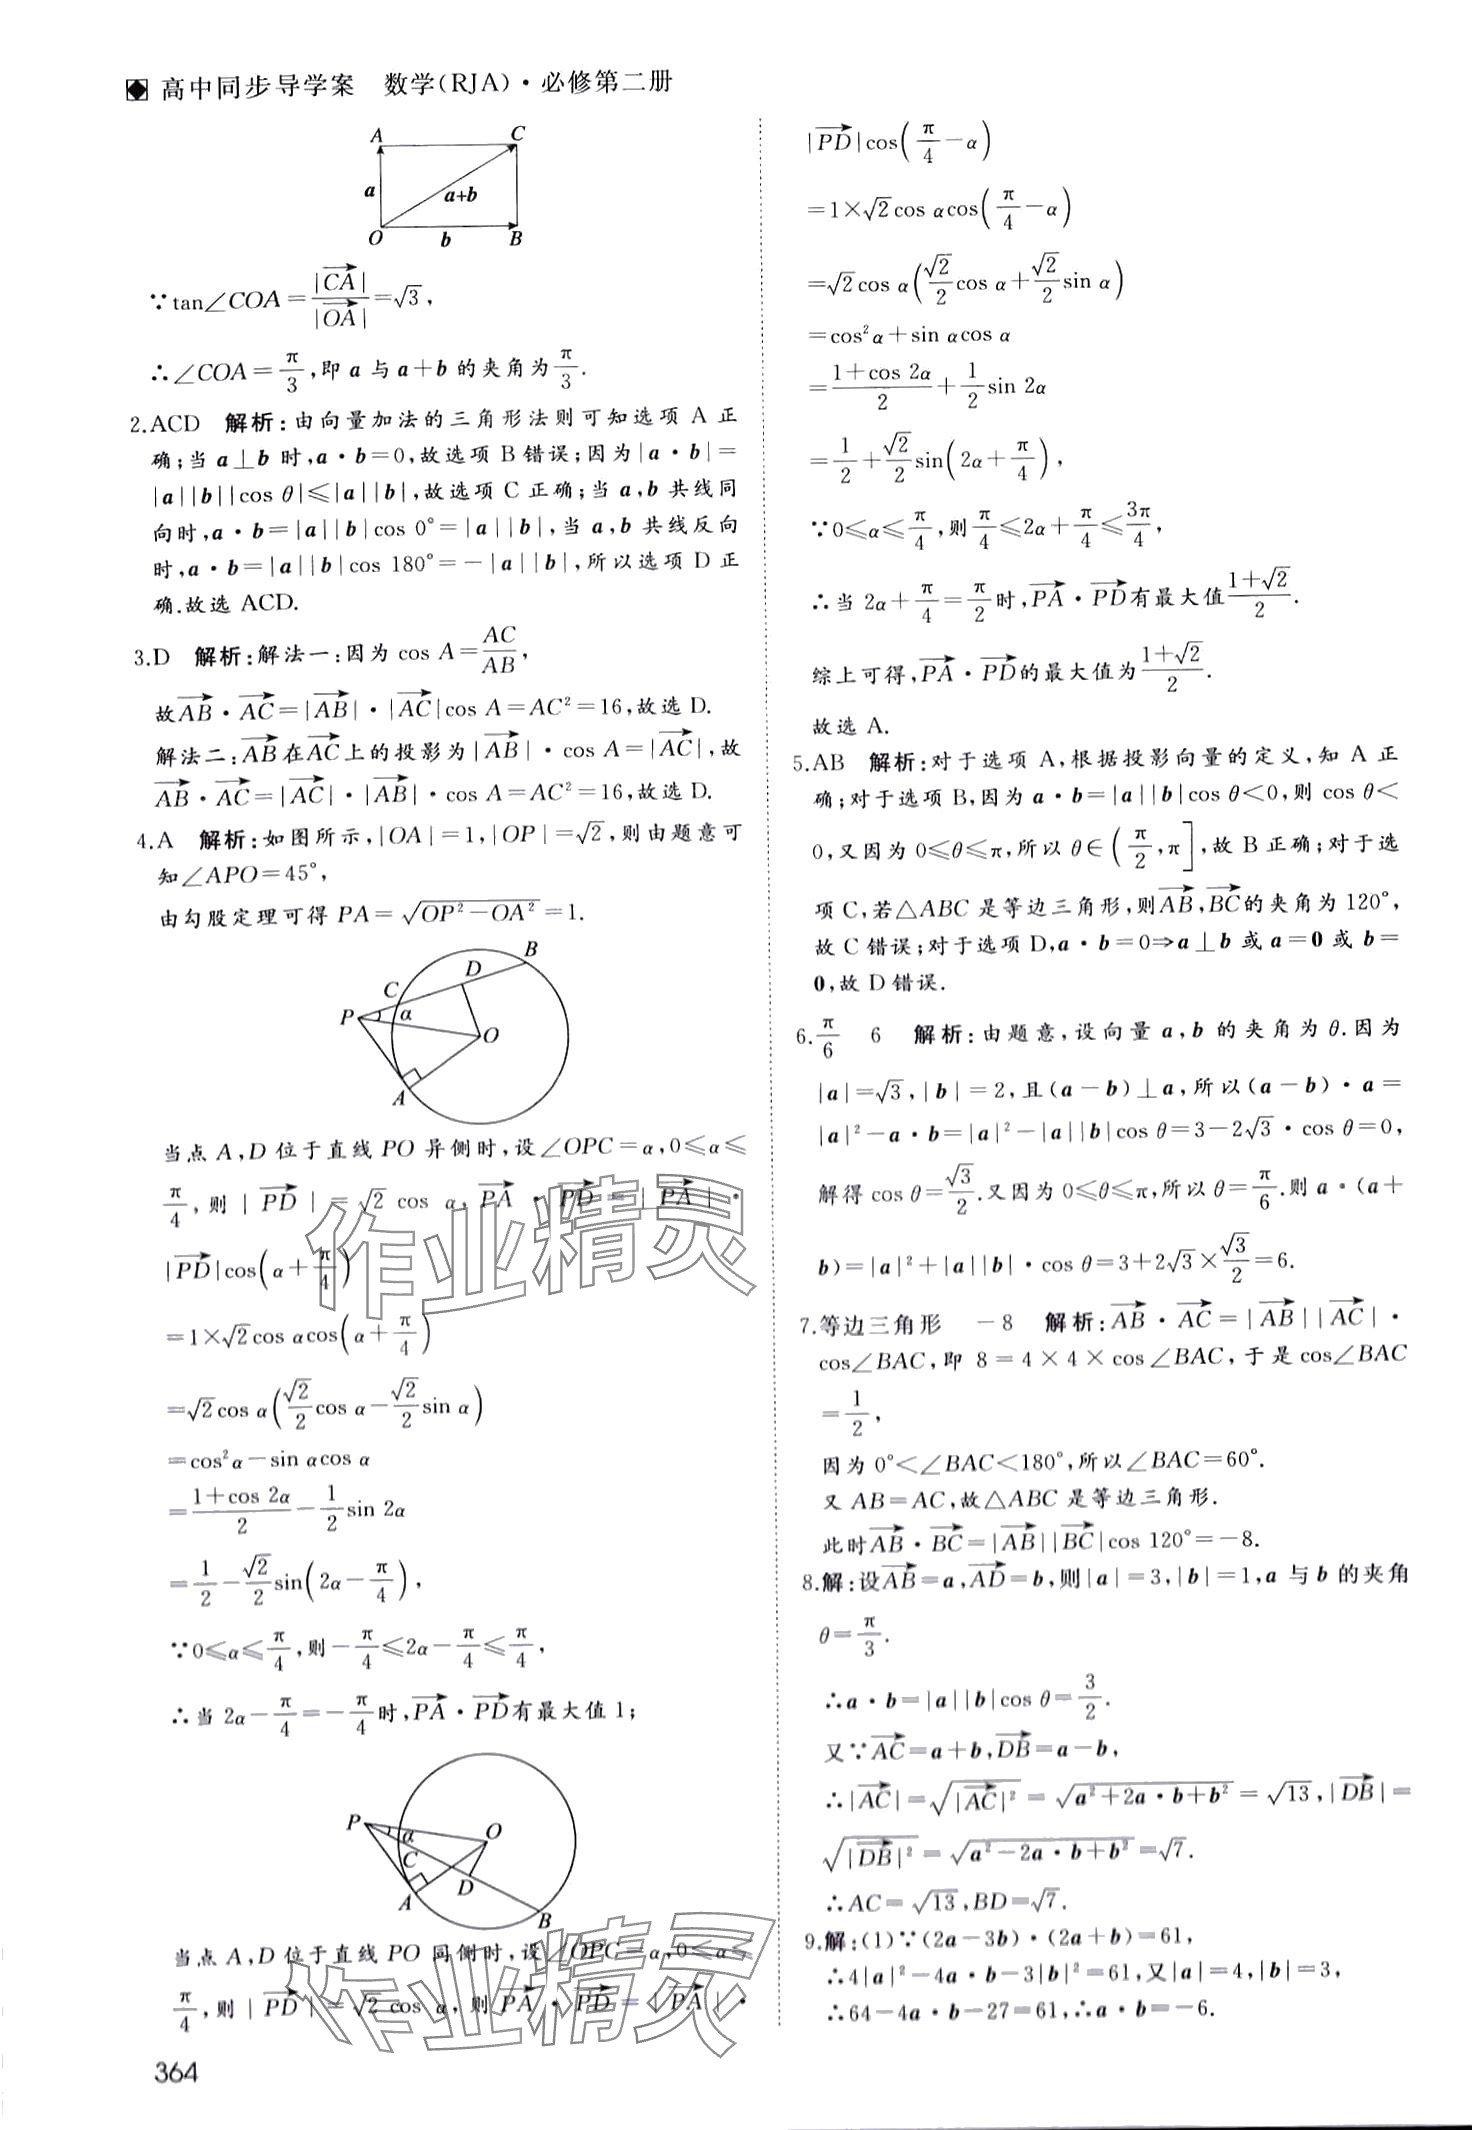 高中同步导学案 数学(RJA)·必修第二册
A C
a a+b
O b B
∵tan∠COA=|CA→|/|OA→|=√3,
∴∠COA=π/3,即 a 与 a+b 的夹角为π/3.
2.ACD 解析:由向量加法的三角形法则可知选项 A 正
确;当 a⊥b 时,a·b=0,故选项 B 错误;因为|a·b|=
|a||b||cos θ|≤|a||b|,故选项 C 正确;当 a,b 共线同
向时,a·b=|a||b|cos 0°=|a||b|,当 a,b 共线反向
时,a·b=|a||b|cos 180°=-|a||b|,所以选项 D 正
确.故选 ACD.
3.D 解析:解法一:因为 cos A=AC/AB,
故AB→·AC→=|AB→|·|AC→|cos A=AC²=16,故选 D.
解法二:AB→在AC→上的投影为|AB→|·cos A=|AC→|,故
AB→·AC→=|AC→|·|AB→|·cos A=AC²=16,故选 D.
4.A 解析:如图所示,|OA|=1,|OP|=√2,则由题意可
知∠APO=45°,
由勾股定理可得 PA=√(OP²-OA²)=1.
B
D
C
P α
O
A
当点 A,D 位于直线 PO 异侧时,设∠OPC=α,0≤α≤
π/4,则|PD→|=√2 cos α,PA→·PD→=|PA→|·
|PD→|cos(α+π/4)
=1×√2cos αcos(α+π/4)
=√2cos α(√2/2cos α-√2/2sin α)
=cos²α-sin αcos α
=(1+cos 2α)/2-1/2sin 2α
=1/2-√2/2sin(2α-π/4),
∵0≤α≤π/4,则-π/4≤2α-π/4≤π/4,
∴当 2α-π/4=-π/4时,PA→·PD→有最大值 1;
P α O
C
A D
B
当点 A,D 位于直线 PO 同侧时,设∠OPC=α,0≤α≤
π/4,则|PD→|=√2 cos α,则 PA→·PD→=|PA→|·
364
|PD→|cos(π/4-α)
=1×√2cos αcos(π/4-α)
=√2cos α(√2/2cos α+√2/2sin α)
=cos²α+sin αcos α
=(1+cos 2α)/2+1/2sin 2α
=1/2+√2/2sin(2α+π/4),
∵0≤α≤π/4,则π/4≤2α+π/4≤3π/4,
∴当 2α+π/4=π/2时,PA→·PD→有最大值(1+√2)/2.
综上可得,PA→·PD→的最大值为(1+√2)/2.
故选 A.
5.AB 解析:对于选项 A,根据投影向量的定义,知 A 正
确;对于选项 B,因为 a·b=|a||b|cos θ<0,则 cos θ<
0,又因为 0≤θ≤π,所以 θ∈(π/2,π],故 B 正确;对于选
项 C,若△ABC 是等边三角形,则AB→,BC→的夹角为 120°,
故 C 错误;对于选项 D,a·b=0⇒a⊥b 或 a=0 或 b=
0,故 D 错误.
6.π/6 6 解析:由题意,设向量 a,b 的夹角为 θ.因为
|a|=√3,|b|=2,且(a-b)⊥a,所以(a-b)·a=
|a|²-a·b=|a|²-|a||b|cos θ=3-2√3·cos θ=0,
解得 cos θ=√3/2.又因为 0≤θ≤π,所以 θ=π/6.则 a·(a+
b)=|a|²+|a||b|·cos θ=3+2√3×√3/2=6.
7.等边三角形 -8 解析:AB→·AC→=|AB→||AC→|·
cos∠BAC,即 8=4×4×cos∠BAC,于是 cos∠BAC
=1/2,
因为 0°<∠BAC<180°,所以∠BAC=60°.
又 AB=AC,故△ABC 是等边三角形.
此时AB→·BC→=|AB→||BC→|cos 120°=-8.
8.解:设AB→=a,AD→=b,则|a|=3,|b|=1,a 与 b 的夹角
θ=π/3.
∴a·b=|a||b|cos θ=3/2.
又∵AC→=a+b,DB→=a-b,
∴|AC→|=√(|AC→|²)=√(a²+2a·b+b²)=√13,|DB→|=
√(|DB→|²)=√(a²-2a·b+b²)=√7.
∴AC=√13,BD=√7.
9.解:(1)∵(2a-3b)·(2a+b)=61,
∴4|a|²-4a·b-3|b|²=61,又|a|=4,|b|=3,
∴64-4a·b-27=61,∴a·b=-6.
作业精灵
作业精灵